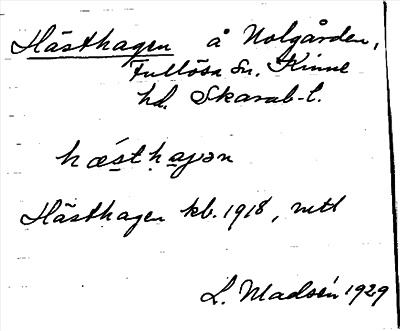 Hästhagen å Nolgården,
Fullösa sn. Kinne
hd. Skarab. l.
hǽst hạgən
Hästhagen kb. 1918, nutt
L. Madsén 1929